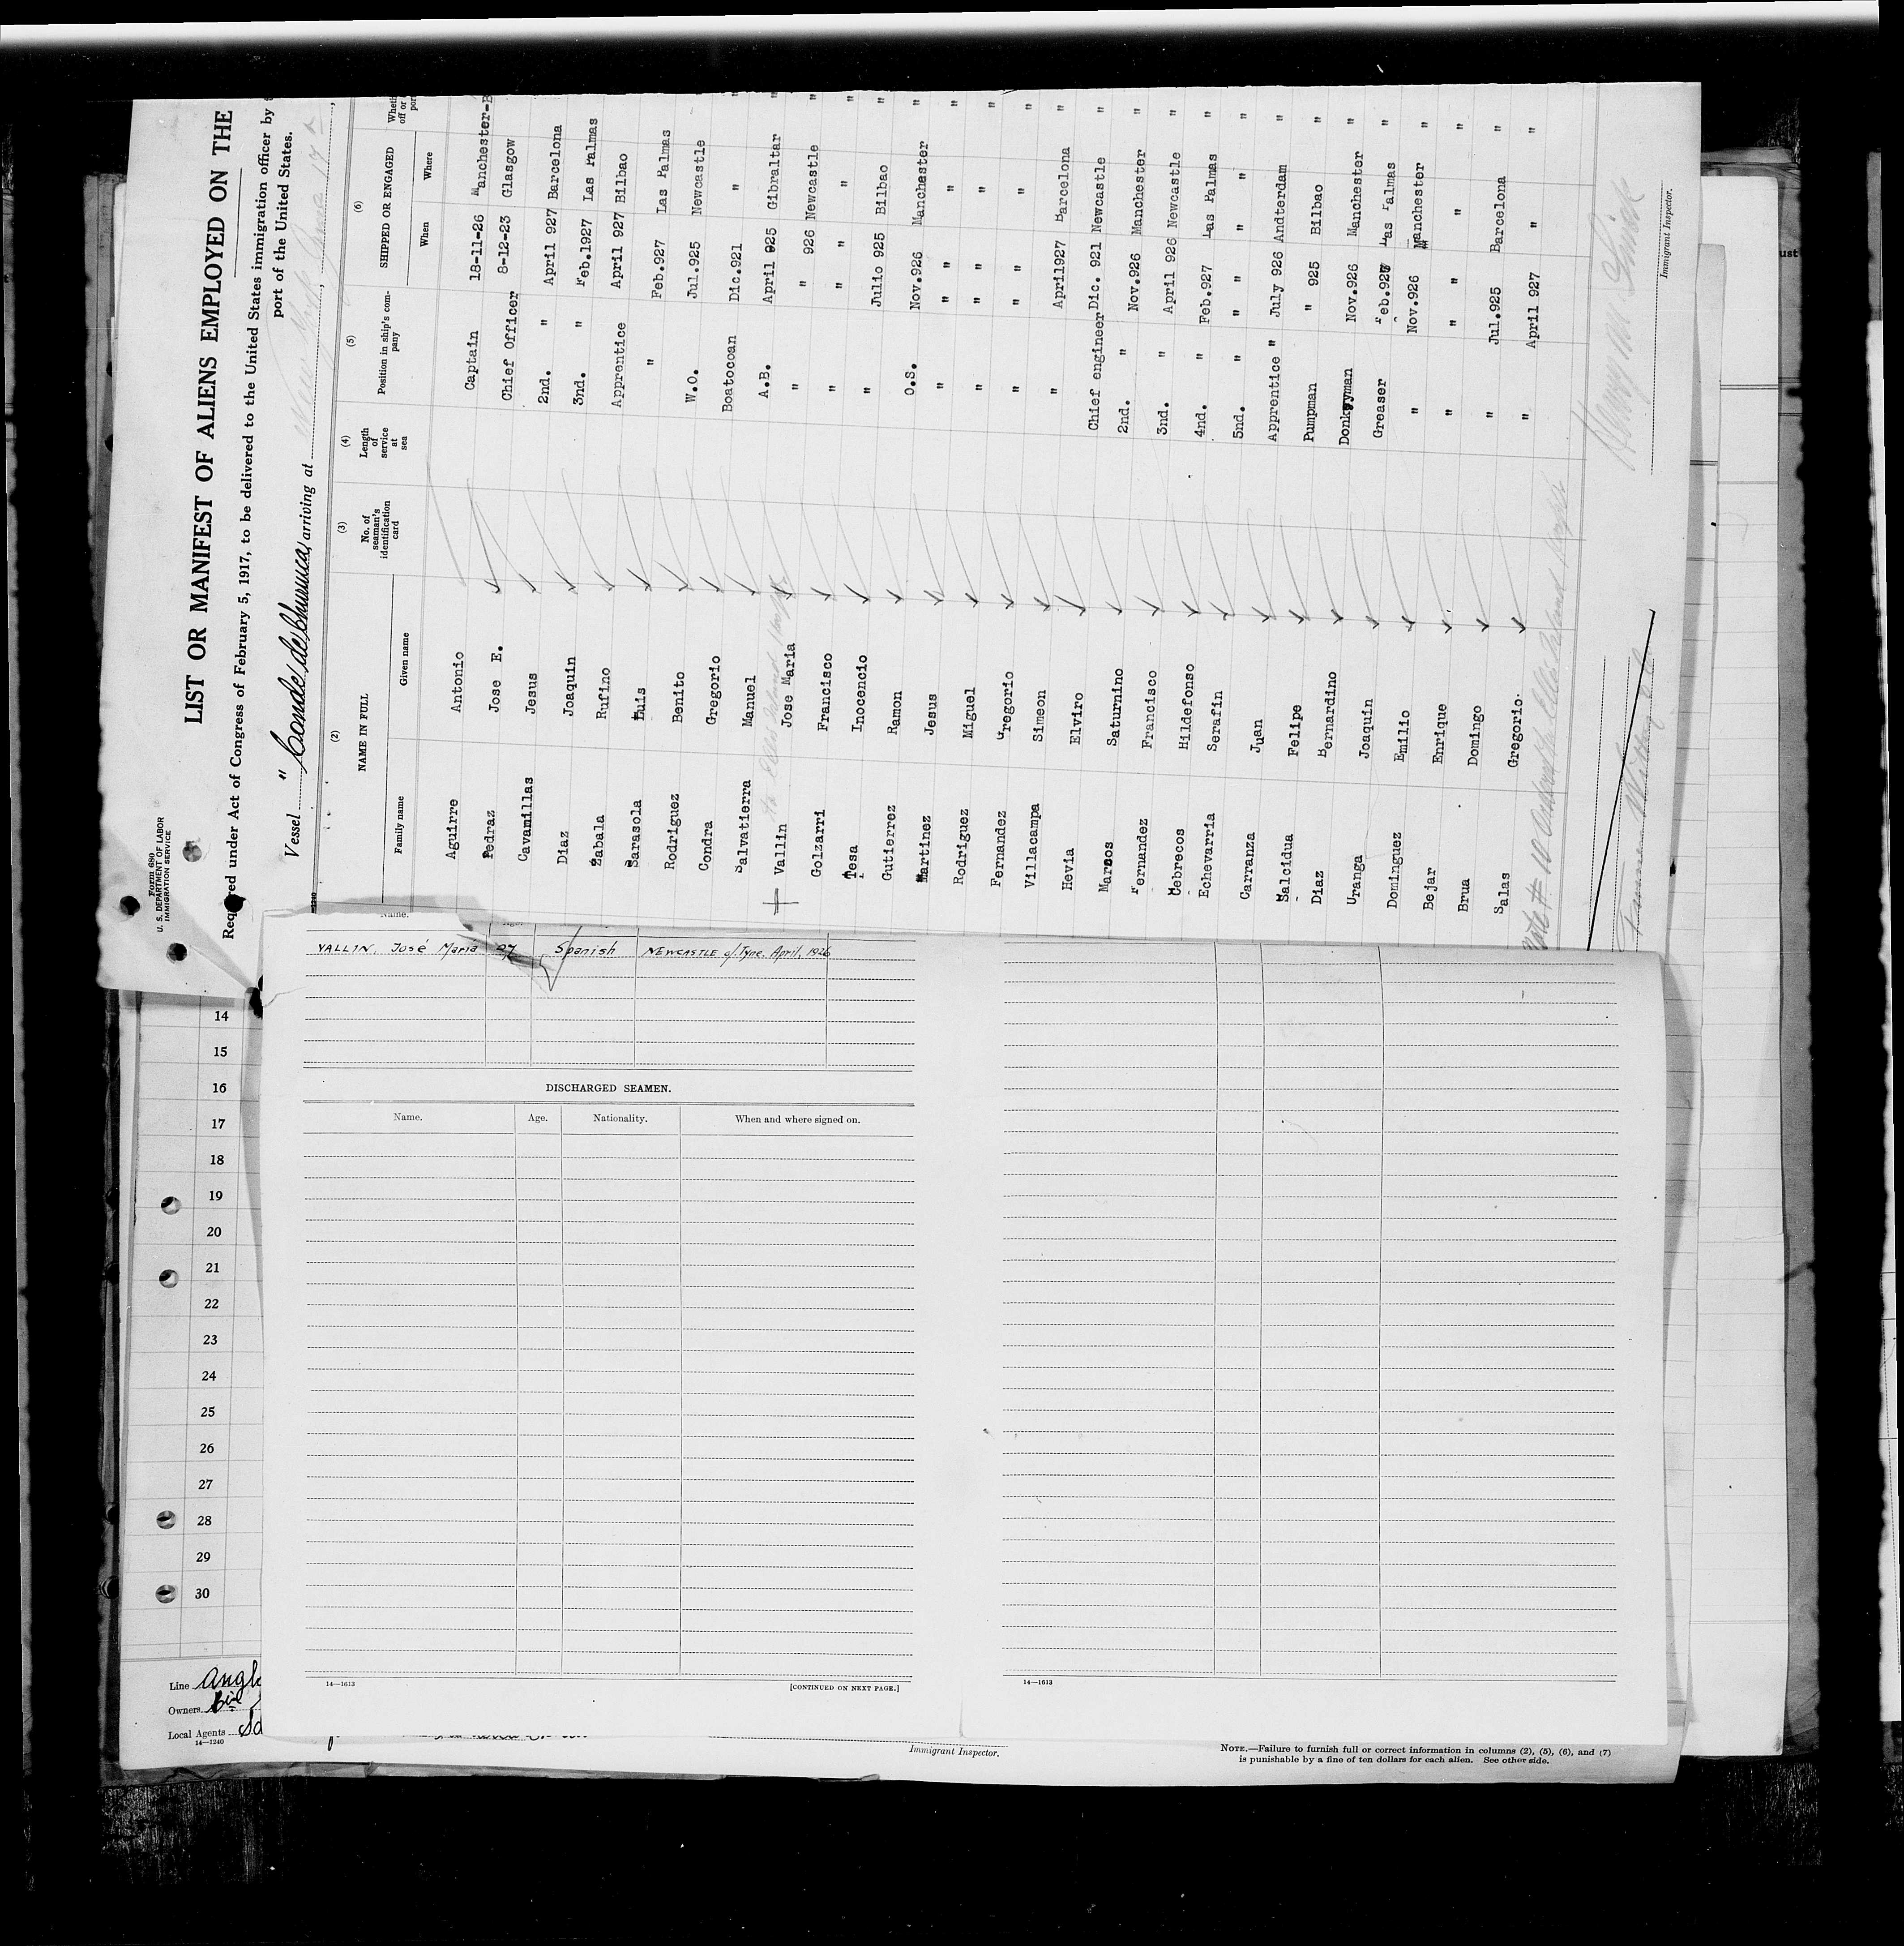 Form 680
U. S. DEPARTMENT OF LABOR
IMMIGRATION SERVICE
LIST OR MANIFEST OF ALIENS EMPLOYED ON THE
under Act of Congress of February 5, 1917, to be delivered to the United States immigration officer by
port of the United States.
Vessel " Conde de Churruca, arriving at
(2) (3) (4) (5) (6)
NAME IN FULL No. of seaman's identification card Length of service at sea Position in ship's company SHIPPED OR ENGAGED
Family name Given name When Where
Aguirre Antonio Captain 18-11-26 Manchester-E
Pedraz Jose E. Chief Officer 8-12-23 Glasgow
Cavanillas Jesus 2nd. " April 927 Barcelona
Diaz Joaquin 3nd. " Feb.1927 Las Palmas
Zabala Rufino Apprentice April 927 Bilbao
Sarasola Luis " Feb.927 Las Palmas "
Rodriguez Benito W.O. Jul.925 Newcastle
Condra Gregorio Boatocoan Dic.921 " "
Salvatierra Manuel A.B. April 925 Gibraltar "
Vallin Jose Maria " " 926 Newcastle "
Golzarri Francisco " " " "
Tesa Inocencio " Julio 925 Bilbao "
Gutierrez Ramon O.S. Nov.926 Manchester "
Martinez Jesus " " " "
Rodriguez Miguel " " " "
Fernandez Gregorio " " " "
Villacampa Simeon " April927 Barcelona "
Hevia Elviro Chief engineer Dic. 921 Newcastle "
Marcos Saturnino 2nd. " Nov.926 Manchester "
Fernandez Francisco 3nd. " April 926 Newcastle "
Cebrecos Hildefonso 4nd. " Feb.927 Las Palmas "
Echevarria Serafin 5nd. " " " " "
Carranza Juan Apprentice " July 926 Andterdam "
Salcidua Felipe Pumpman " 925 Bilbao "
Diaz Bernardino Donkeyman Nov.926 Manchester "
Uranga Joaquin Greaser Feb.927 Las Palmas "
Dominguez Emilio " Nov.926 Manchester "
Bejar Enrique " " " "
Brua Domingo " Jul.925 Barcelona "
Salas Gregorio. " April 927 " "
Immigrant Inspector.
Name.
VALLIN, José Maria 27 Spanish NEWCASTLE o/. Tyne. April, 1926
DISCHARGED SEAMEN.
Name. Age. Nationality. When and where signed on.
14—1613 [CONTINUED ON NEXT PAGE.]
14—1613
14
15
16
17
18
19
20
21
22
23
24
25
26
27
28
29
30
Line
Owners
Local Agents
14—1240
Immigrant Inspector.
NOTE.—Failure to furnish full or correct information in columns (2), (5), (6), and (7)
is punishable by a fine of ten dollars for each alien. See other side.